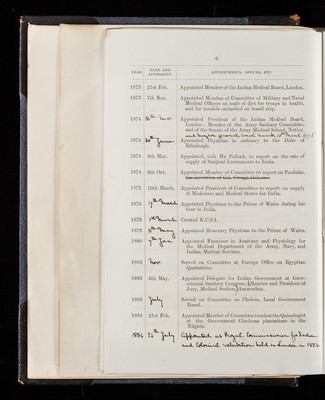 6
YEAR. DATE AND AUTHORITY. APPOINTMENTS, OFFICES, ETC.
1873 21st Feb. Appointed Member of the Indian Medical Board, London.
1873 7th Nov. Appointed Member of Committee of Military and Naval
Medical Officers on scale of diet for troops in health,
and for invalids embarked on board ship.
1874 Nov. Appointed President of the Indian Medical Board,
London: Member of the Army Sanitary Committee,
and of the Senate of the Army Medical School, Netley.
1874 June Appointed Physician in ordinary to the Duke of
Edinburgh.
1874 8th May. Appointed, with Mr. Pollock, to report on the rate of
supply of Surgical Instruments to India.
1874 6th Oct. Appointed Member of Committee to report on Pandahs,
1875 19th March. Appointed President of Committee to report on supply
of Medicines and Medical Stores for India.
1875 17th March Appointed Physician to the Prince of Wales during his
tour in India.
1876 7th March Created K.C.S.I.
1876 8th May Appointed Honorary Physician to the Prince of Wales.
1880 7th Jan Appointed Examiner in Anatomy and Physiology for
the Medical Department of the Army, Navy, and
Indian Medical Services.
1882 Nov. Served on Committee at Foreign Office on Egyptian
Quarantine.
1883 5th May. Appointed Delegate for Indian Government at Inter-
colonial Sanitary Congress (Member and President of
Jury, Medical Section) Amsterdam.
1883 July Served on Committee on Cholera, Local Government
Board.
1884 21st Feb. Appointed Member of Committee to select the Quinologist
at the Government Cinchona plantations in the
Nilgiris.
1884 24th July Appointed as Royal Commissioner for Indian
and Colonial exhibition held in London in 1886